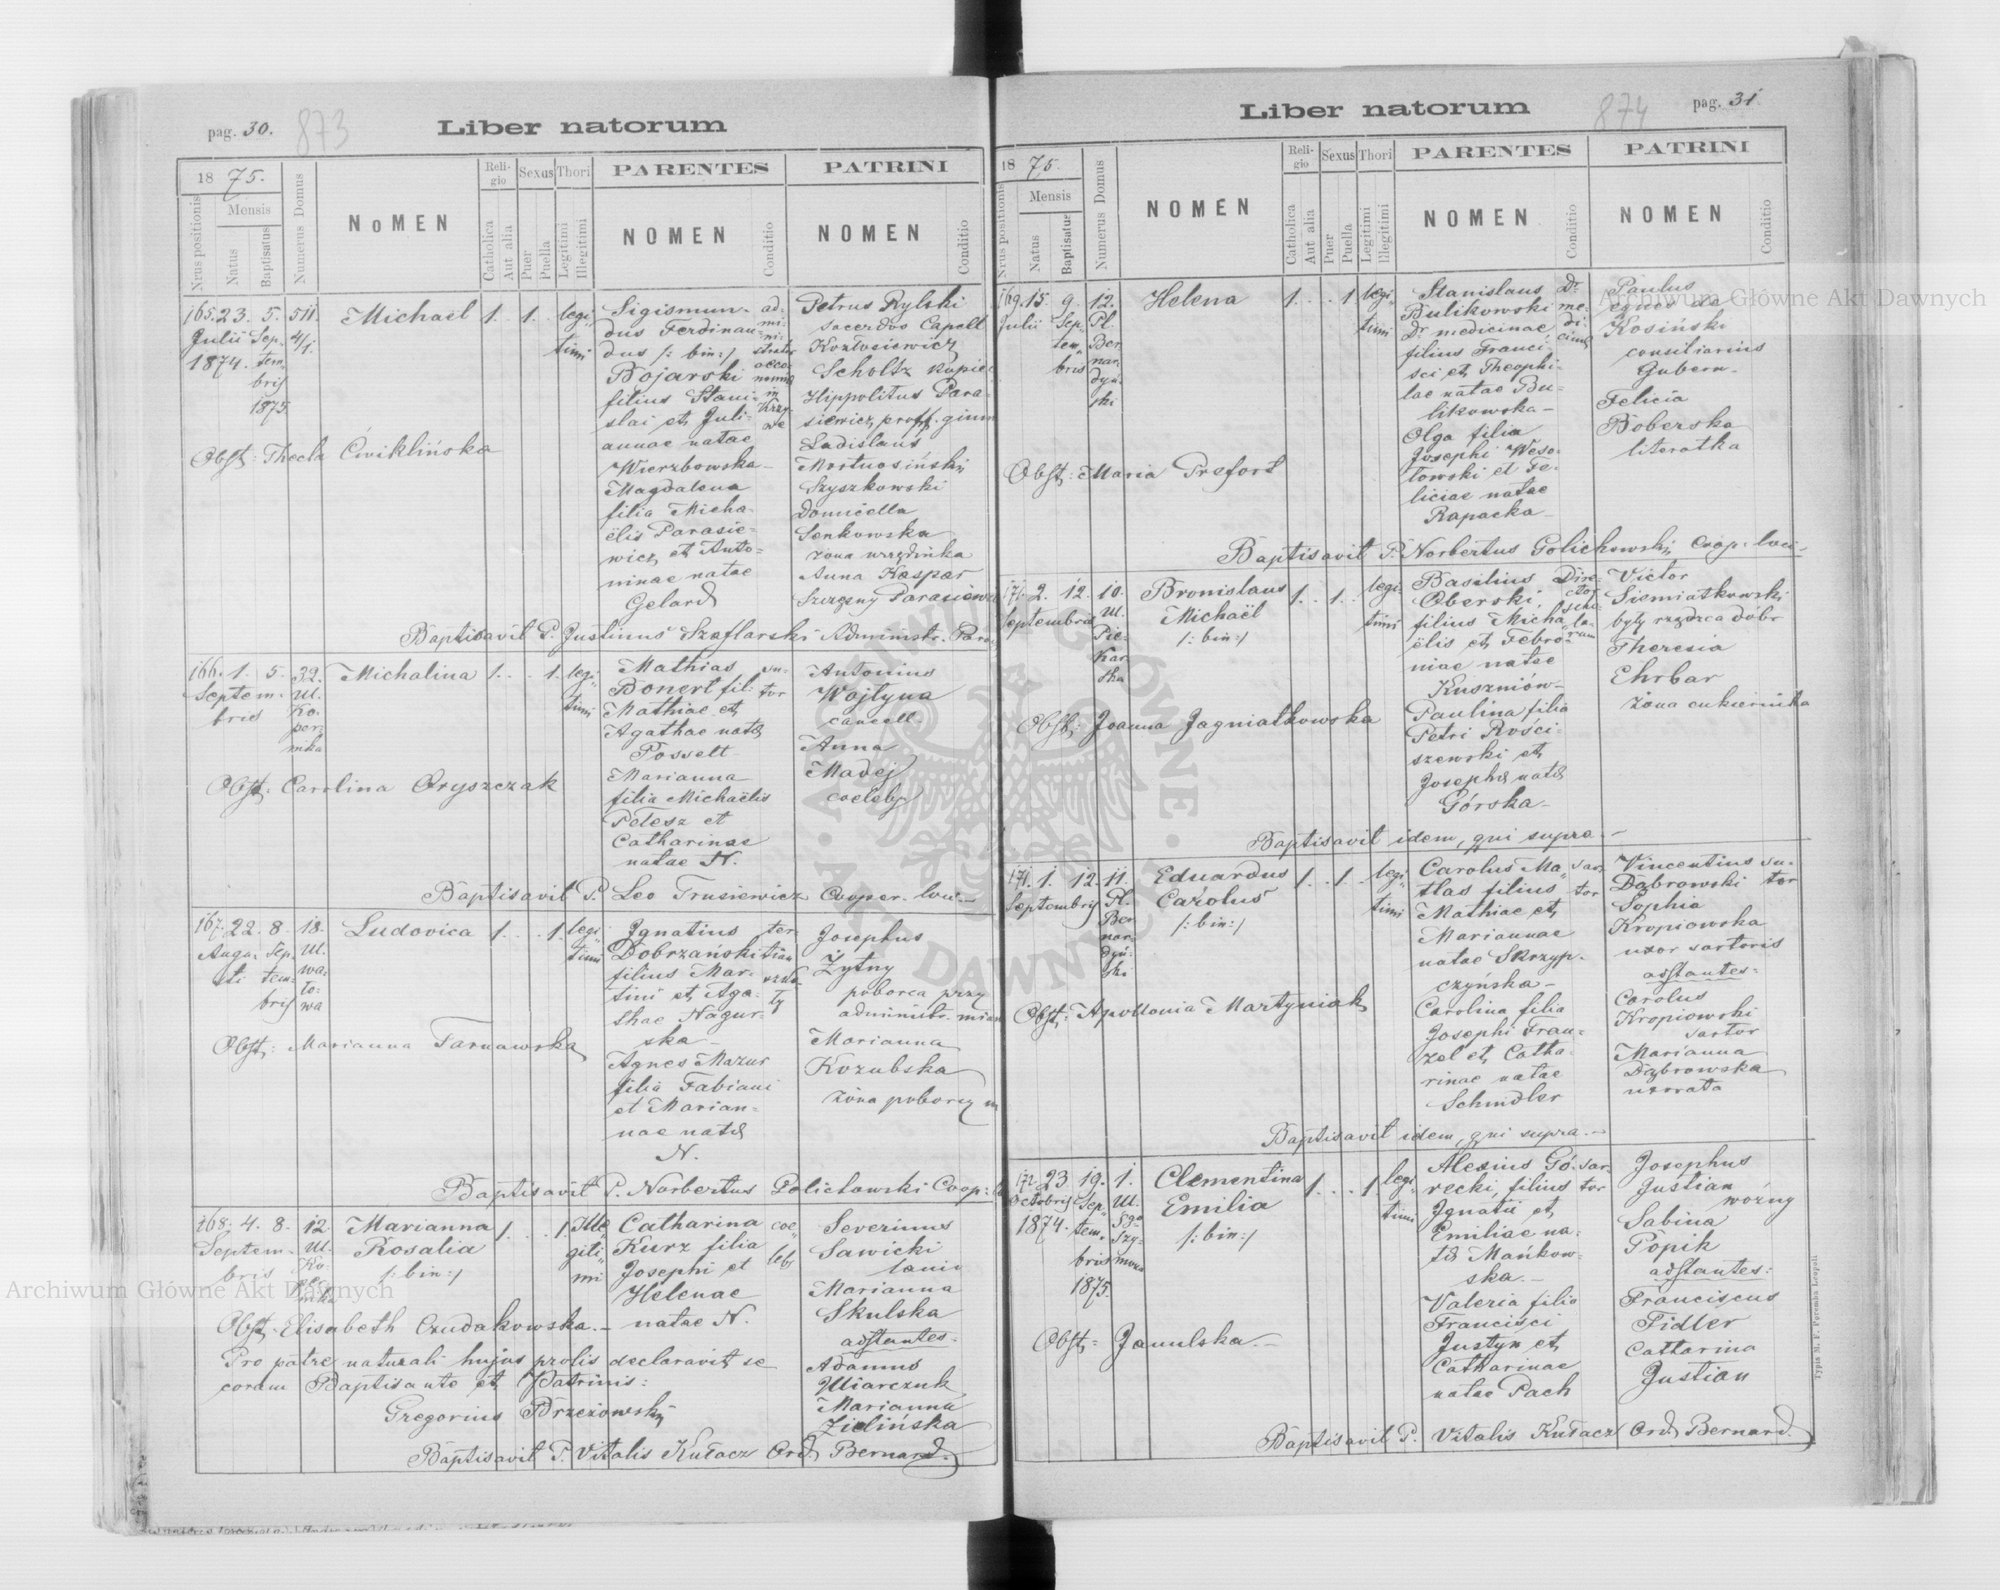 pag. 30. 873
Liber natorum
1875.
Nrus positionis
Mensis
Natus
Baptisatus
Numerus Domus
NOMEN
Religio
Catholica
Aut alia
Sexus
Puer
Puella
Thori
Legitimi
Illegitimi
PARENTES
NOMEN
Conditio
PATRINI
NOMEN
Conditio
165. 23. 5. 511.
Julii Sep- 4/1.
1874. tem-
bris
1875
Michaël
1. . 1. .
legi-
timi
Sigismun-
dus Ferdinan-
dus /: bin:/
Bojarski
filius Stani-
slai et Juli-
annae natae
Wierzbowska-
Magdalena
filia Micha-
ëlis Parasie-
wicz et Anto-
ninae natae
Gelard
Petrus Rylski
sacerdos Capell
Kozłosiewicz
Scholtz kupiec
Hippolitus Para-
siewicz proff. gimn
Ladislaus
Szyszkowski
Domicella
Senkowska
żona urzędnika
Anna Kaspar
Szczęsny Parasiewi
Obst: Thecla Ćwiklińska
Baptisavit P. Justinus Szaflarski Administr. Paro
166. 1. 5. 32.
Septem- Ul.
bris Ko-
per-
nika
Michalina
1. . . 1.
legi-
timi
Mathias
Bonert fil:
Mathiae et
Agathae natae
Posselt
Marianna
filia Michaëlis
Pelesz et
Catharinae
natae N.
su-
tor
Antonius
Wojtyna
cancell.
Anna
Madej
coelebs
Obst: Carolina Oryszczak
Baptisavit P. Leo Trusiewicz Cooper. loci.-
167. 22. 8. 18.
Augu- Sep- Ul.
sti tem- Wa-
bris to-
wa
Ludovica
1. . . 1.
legi-
timi
Ignatius
Dobrzański
filius Mar-
tini et Aga-
thae Nagur-
ska -
Agnes Mazur
filia Fabiani
et Marian-
nae natae
N.
Josephus
Żytny
poborca przy
administr. mian
Marianna
Kozubska
żona poborcy m
Obst: Marianna Tarnawska
Baptisavit P. Norbertus Golichowski Coop: lo
168. 4. 8. 12.
Septem- Ul.
bris Ko-
per-
nika
Marianna
Rosalia
/: bin:/
1. . . 1.
Ille-
giti-
mi
Catharina
Kurz filia
Josephi et
Helenae
natae N.
coe-
lebs
Severinus
Sawicki
lanio
Marianna
Skulska
adstantes:
Adamus
Uliarczuk
Marianna
Zielińska
Obst. Elisabeth Czudakowska.-
Pro patre naturali hujus prolis declaravit se
coram Baptisante et Patrinis:
Gregorius Brzezowski
Baptisavit P. Vitalis Kułacz Ord. Bernard.
874 pag. 31.
Liber natorum
1875.
Nrus positionis
Mensis
Natus
Baptisatus
Numerus Domus
NOMEN
Religio
Catholica
Aut alia
Sexus
Puer
Puella
Thori
Legitimi
Illegitimi
PARENTES
NOMEN
Conditio
PATRINI
NOMEN
Conditio
169. 15. 9. 12.
Julii Sep- Pl.
tem- Ber-
bris nar-
dyń-
ski
Helena
1. . . 1
legi-
timi
Stanislaus
Bulikowski
Dr medicinae
filius Franci-
sci et Theophi-
lae natae Bu-
likowska-
Olga filia
Josephi Weso-
łowski et Fe-
liciae natae
Rapacka-
Dr
me-
di-
cinae
Paulus
eques de
Kosiński
consiliarius
Gubern-
Felicia
Boberska
literatka
Obst: Maria Prefort
Baptisavit P. Norbertus Golichowski Coop: loci-
171. 2. 12. 10.
Septembris Ul.
Pie-
kar-
ska
Bronislaus
Michaël
/: bin:/
1. . 1. .
legi-
timi
Basilius
Oberski,
filius Micha-
ëlis et Febro-
niae natae
Kuszniów-
Paulina filia
Petri Rości-
szewski et
Josephae natae
Górska-
Dire-
ctor
scho-
la-
rum
Victor
Siemiatkowski
były rządca dóbr
Theresia
Ehrbar
żona cukiernika
Obst: Joanna Jagniatkowska
Baptisavit idem, qui supra.-
171. 1. 12. 11
Septembris Pl.
Ber-
nar-
dyń-
ski
Eduardus
Carolus
/: bin:/
1. . 1. .
legi-
timi
Carolus Ma-
tlas filius
Mathiae et
Mariannae
natae Skrzyp-
czyńska-
Carolina filia
Josephi Fran-
zel et Catha-
rinae natae
Schindler
sar-
tor
Vincentius su-
Dąbrowski tor
Sophia
Kropiowska
uxor sartoris
adstantes:
Carolus
Kropiowski
sartor
Marianna
Dąbrowska
uxorata
Obst: Apollonia Martyniak
Baptisavit idem, qui supra.-
172. 23. 19. 1.
Octobris Sep- Ul.
1874. tem- Sgo
bris Szy-
1875. mona
Clementina
Emilia
/: bin:/
1. . . 1.
legi-
timi
Alexius Gó-
recki, filius
Ignatii et
Emiliae na-
tae Mańkow-
ska.-
Valeria filia
Francisci
Justyn et
Catharinae
natae Pach
sar-
tor
Josephus
Justian
woźny
Sabina
Popik
adstantes:
Franciscus
Fidler
Catharina
Justian
Obst: Janulska.-
Baptisavit P. Vitalis Kułacz Ord. Bernard.
Typis M. F. Poremba Leopoli
Archiwum Główne Akt Dawnych
Archiwum Główne Akt Dawnych
ARCHIWUM GŁÓWNE AKT DAWNYCH